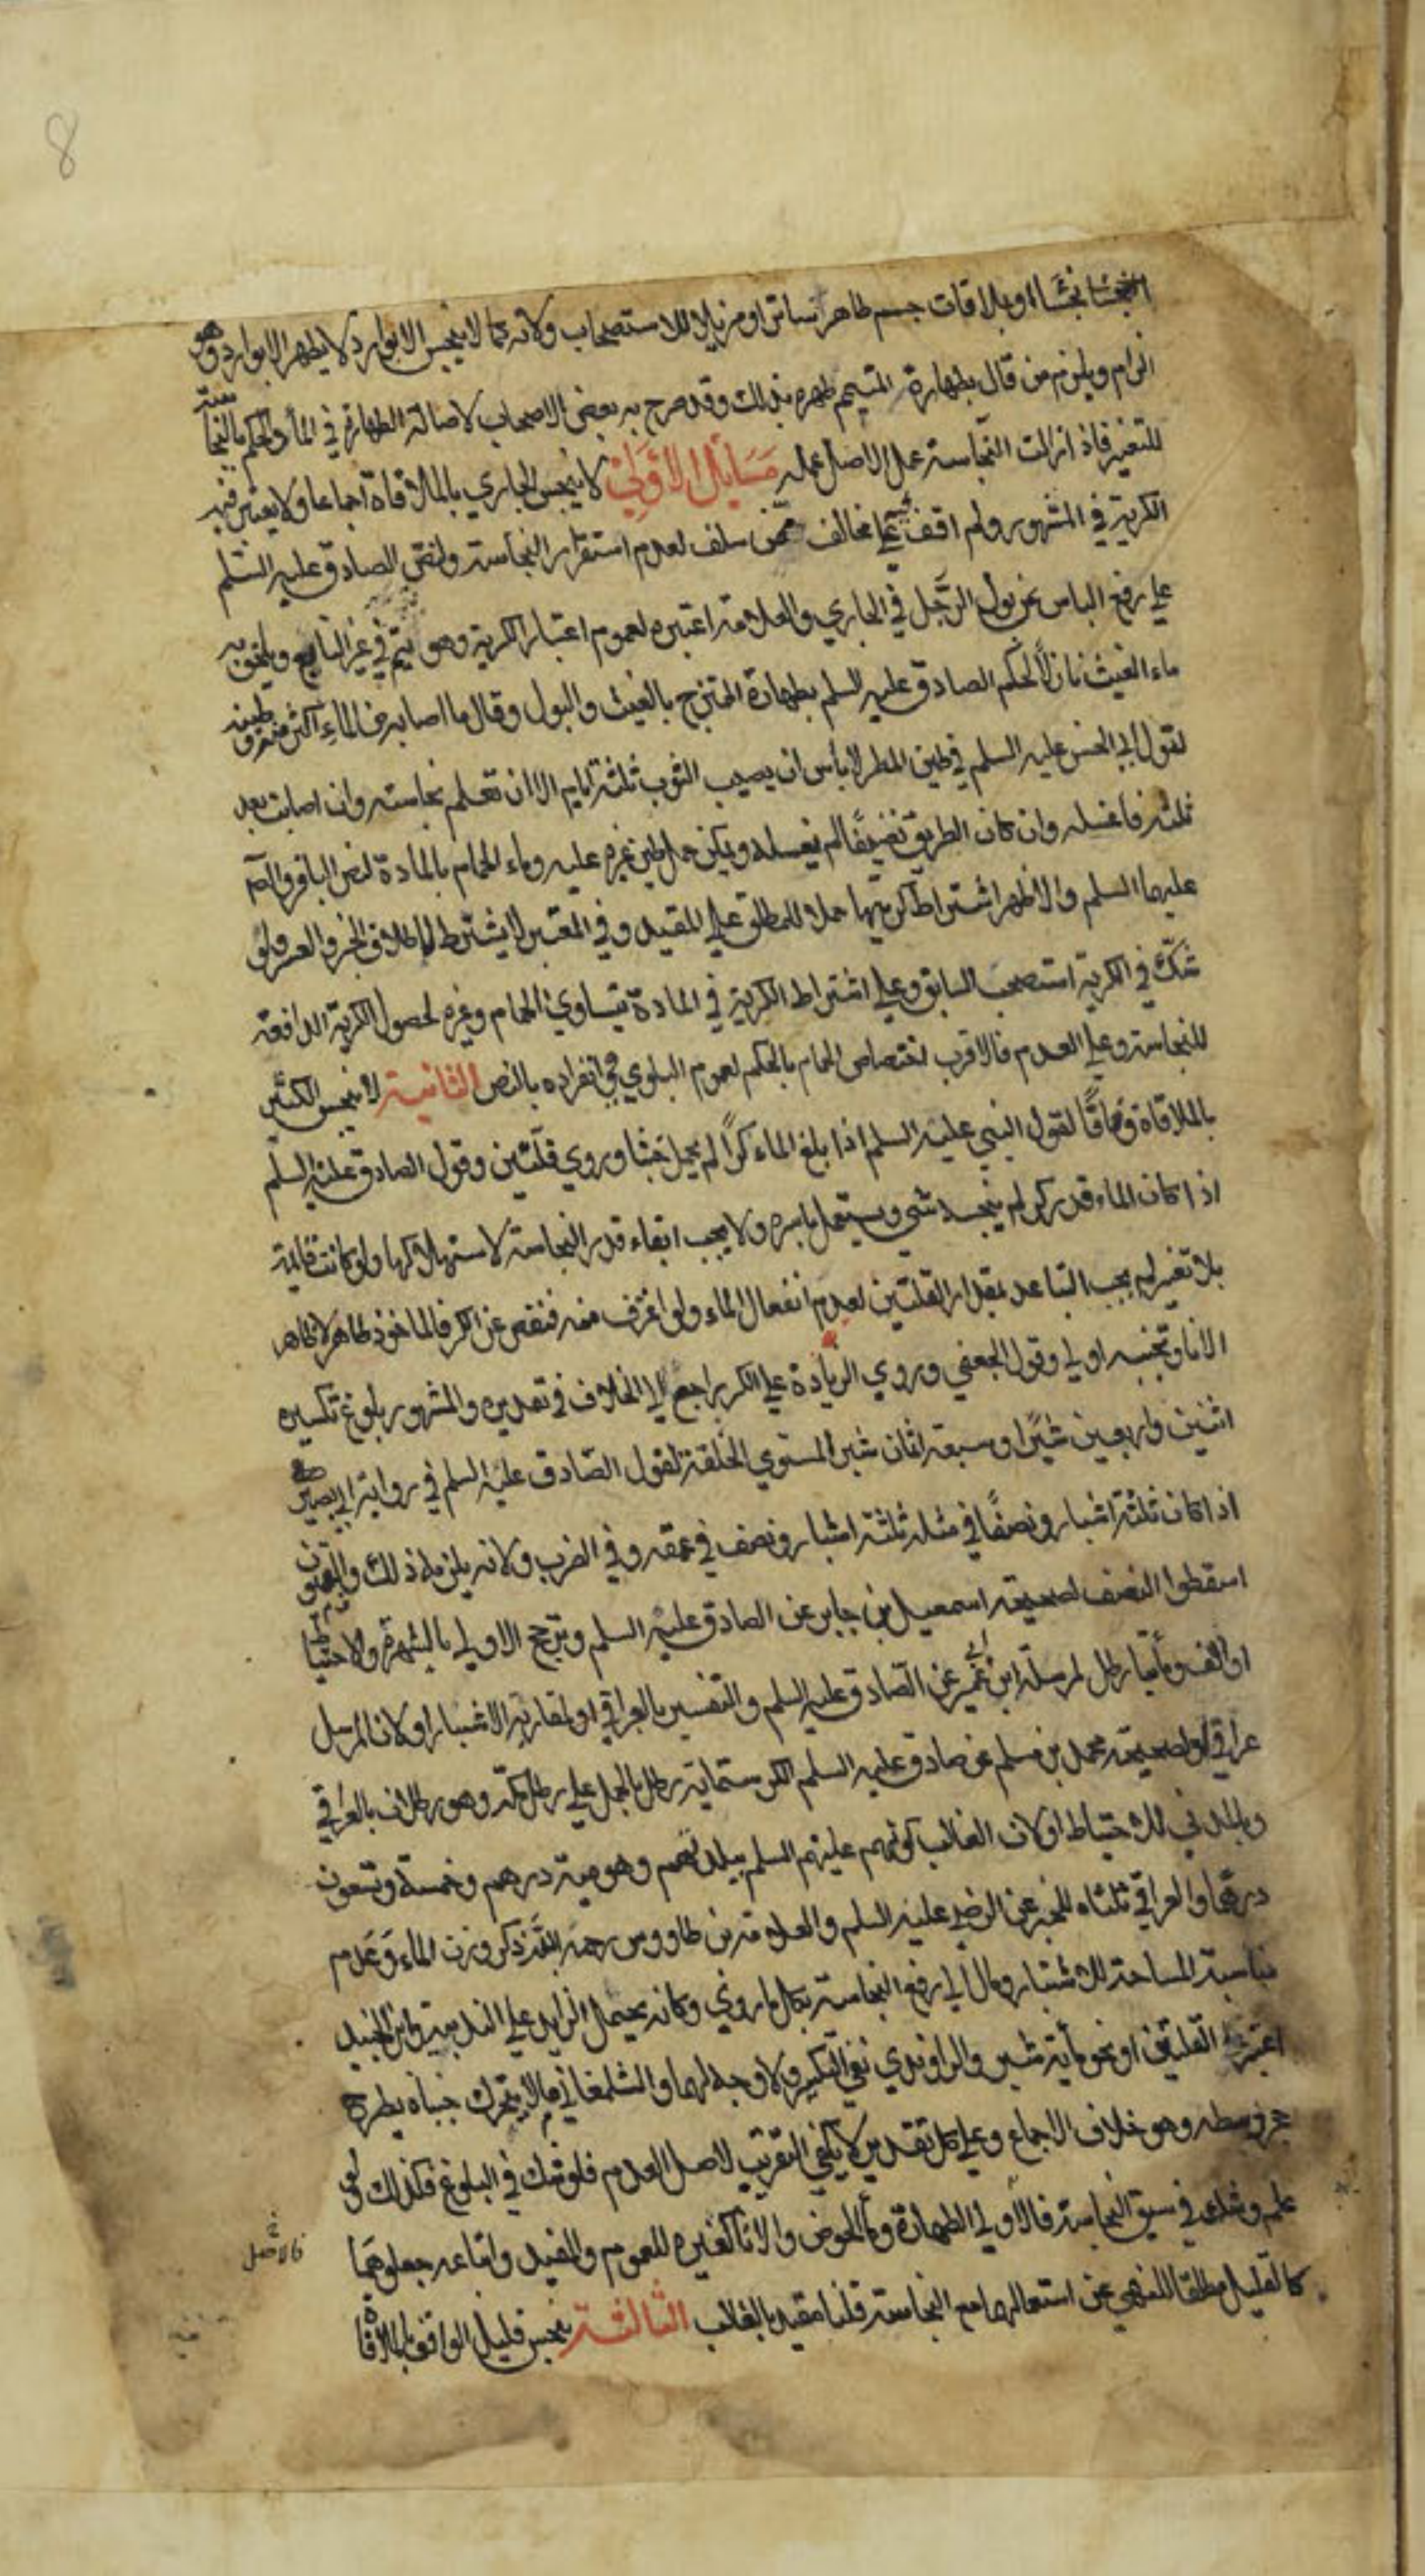 8
او بملاقات جسم طاهر ساتر او مزيلا للاستصحاب ولانه كما لا ينجس الا بوارد لا يطهر الا بوارد وهو
الزام ويلزم من قال بطهارة المتيمم طهره بذلك وقد صرح به بعض الاصحاب لاصالة الطهارة في الماء والحكم بالنجاسة
للتغير فاذا زالت النجاسة عمل الاصل عمله مسايل الاولى لا ينجس الجاري بالملاقاة اجماعا ولا يعتبر فيه
الكرية في المشهور ولم اقف فيه على مخالف ممن سلف لعدم استقرار النجاسة ولنص الصادق عليه السلم
على رفع الباس عن بول الرجل في الجاري والعلامة اعتبره لعموم اعتبار الكرية وهو يتم في غير النابع ويلحق به
ماء الغيث نازلا لحكم الصادق عليه السلم بطهارة الممتزج بالغيث والبول وقال ما اصابه من الماء اكثر منه وطينه
لقول ابي الحسن عليه السلم في طين المطر لا بأس ان يصيب الثوب ثلثة ايام الا ان تعلم نجاسته وان اصابت بعد
ثلثه فاغسله وان كان الطريق نضيفا لم تغسله ويمكن حمل طين غيره عليه وماء الحمام بالمادة لنص الباقر والصم
عليهما السلم والاظهر اشتراط كريتها حملا للمطلق على المقيد وفي المعتبر لا يشترط لاطلاق الخبر والعسر ولو
شك في الكرية استصحب السابق وعلى اشتراط الكرية في المادة يتساوى الحمام وغيره لحصول الكرية الدافعة
للنجاسة وعلى العدم فالاقرب اختصاص الحمام بالحكم لعموم البلوى وانفراده بالنص الثانية لا ينجس الكثير
بالملاقاة وفاقا لقول النبي عليه السلم اذا بلغ الماء كرا لم يحمل خبثا وروي قلتين وقول الصادق عليه السلم
اذا كان الماء قدر كر لم ينجسه شي ويستعمل باسره ولا يجب ابقاء قدر النجاسة لاستهلاكها ولو كانت قائمة
بلا تغير لم يجب التباعد بمقدار القلتين لعدم انفعال الماء ولو اغترف منه فنقص عن الكر فالماخوذ طاهر لا ظاهر
الانا وتجنبه اولى وقول الجعفي وروي الزيادة على الكر راجع الى الخلاف في تقديره والمشهور بلوغ تكسيره
اثنين واربعين شبرا وسبعة اثمان شبر المستوي الخلقة لقول الصادق عليه السلم في رواية ابي بصير
اذا كان ثلثة اشبار ونصفا في مثله ثلثة اشبار ونصف في عمقه وفي الضرب ولانه يلزم ذلك والقميون
اسقطوا النصف لصحيحة اسمعيل بن جابر عن الصادق عليه السلم وترجح الاولى بالشهرة والاحتياط
او الف ومأتيا رطل لمرسلة ابن ابي عمير عن الصادق عليه السلم والتفسير بالعراقي او لمقاربة الاشبار او لان المرسل
عراقي او لصحيحة محمد بن مسلم عن صادق عليه السلم الكر ستماية رطل بالحمل على رطل مكة وهو رطلان بالعراقي
وبالمدني للاحتياط او لان الغالب كونهم عليهم السلم ببلدهم وهو مية درهم وخمسة وتسعون
درهما والعراقي ثلثاه للخبر عن الرضي عليه السلم والعلامة بن طاووس رحمه الله ذكر وزن الماء وعدم
مناسبة المساحة للاشبار ومال الى رفع النجاسة بكل ما روي وكانه يحمل الزايد على الندبية وابن الجنيد
اعتبر القلتين او نحو مأية شبر والراوندي نفى التكسير ولا وجه لهما والشلمغاني ما لا يتحرك جنباه بطرح
حجر وسطه وهو خلاف الاجماع وعلى كل تقدير لا يكفي التقريب لاصل العدم فلو شك في البلوغ فكذلك ولو
علم وشك في سبق النجاسة فالاولى الطهارة وماء الحوض والانا كغيره للعموم والمفيد واتباعه جعلوهما
كالقليل مطلقا للنهي عن استعمالهما مع النجاسة قلنا مقيد بالغالب الثالثة ينجس قليل الواقف بالملاقاة